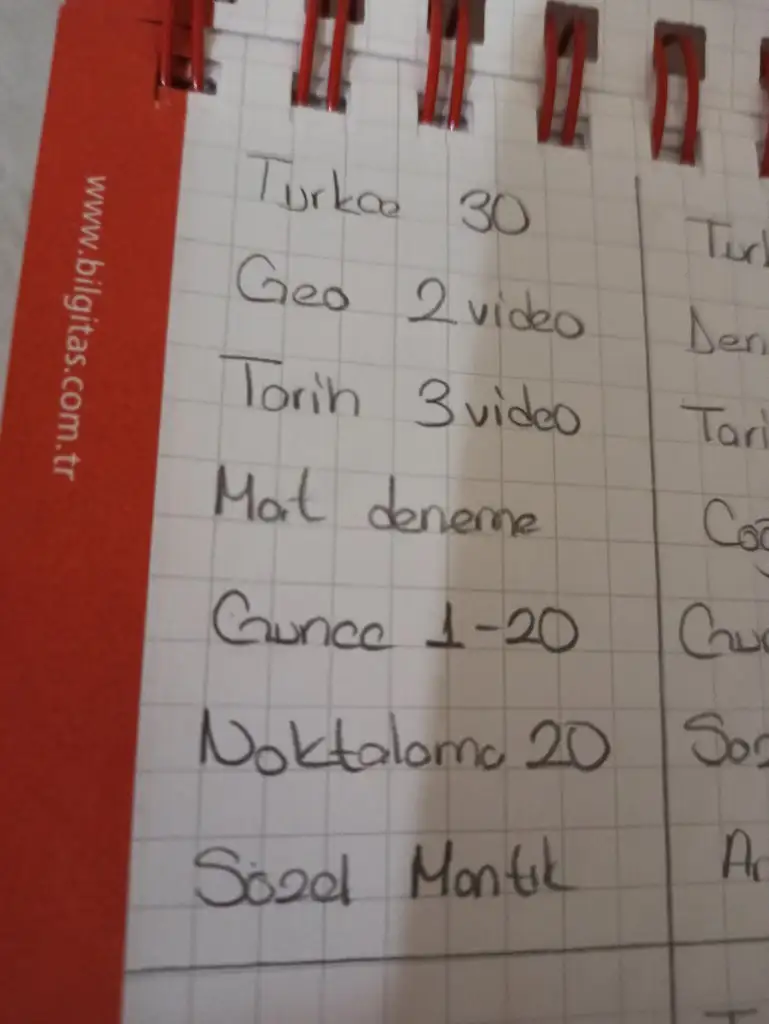 www.bilgitas.com.tr
Turkce 30
Geo 2 video
Tarih 3 video
Mat deneme
Gunce 1-20
Noktalama 20
Sözel Mantık
Tur
Den
Tari
Coğ
Sö